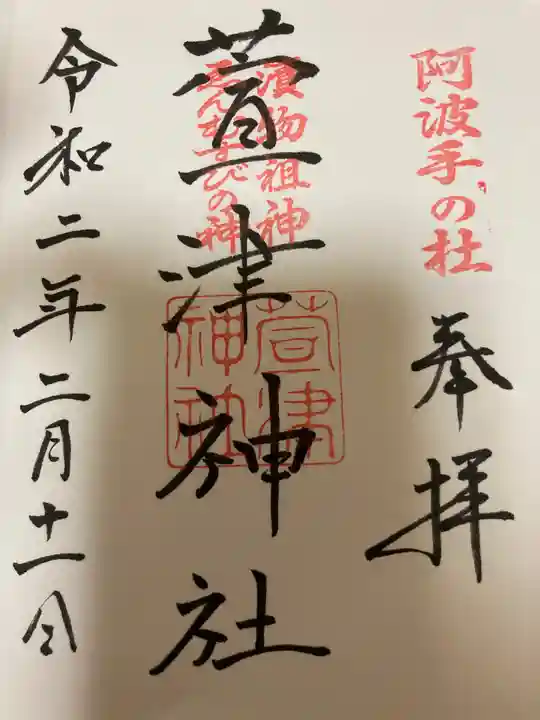 阿波手の杜
奉拝
漬物祖神
縁むすびの神
萱津神社
萱津神社
令和二年二月十一日